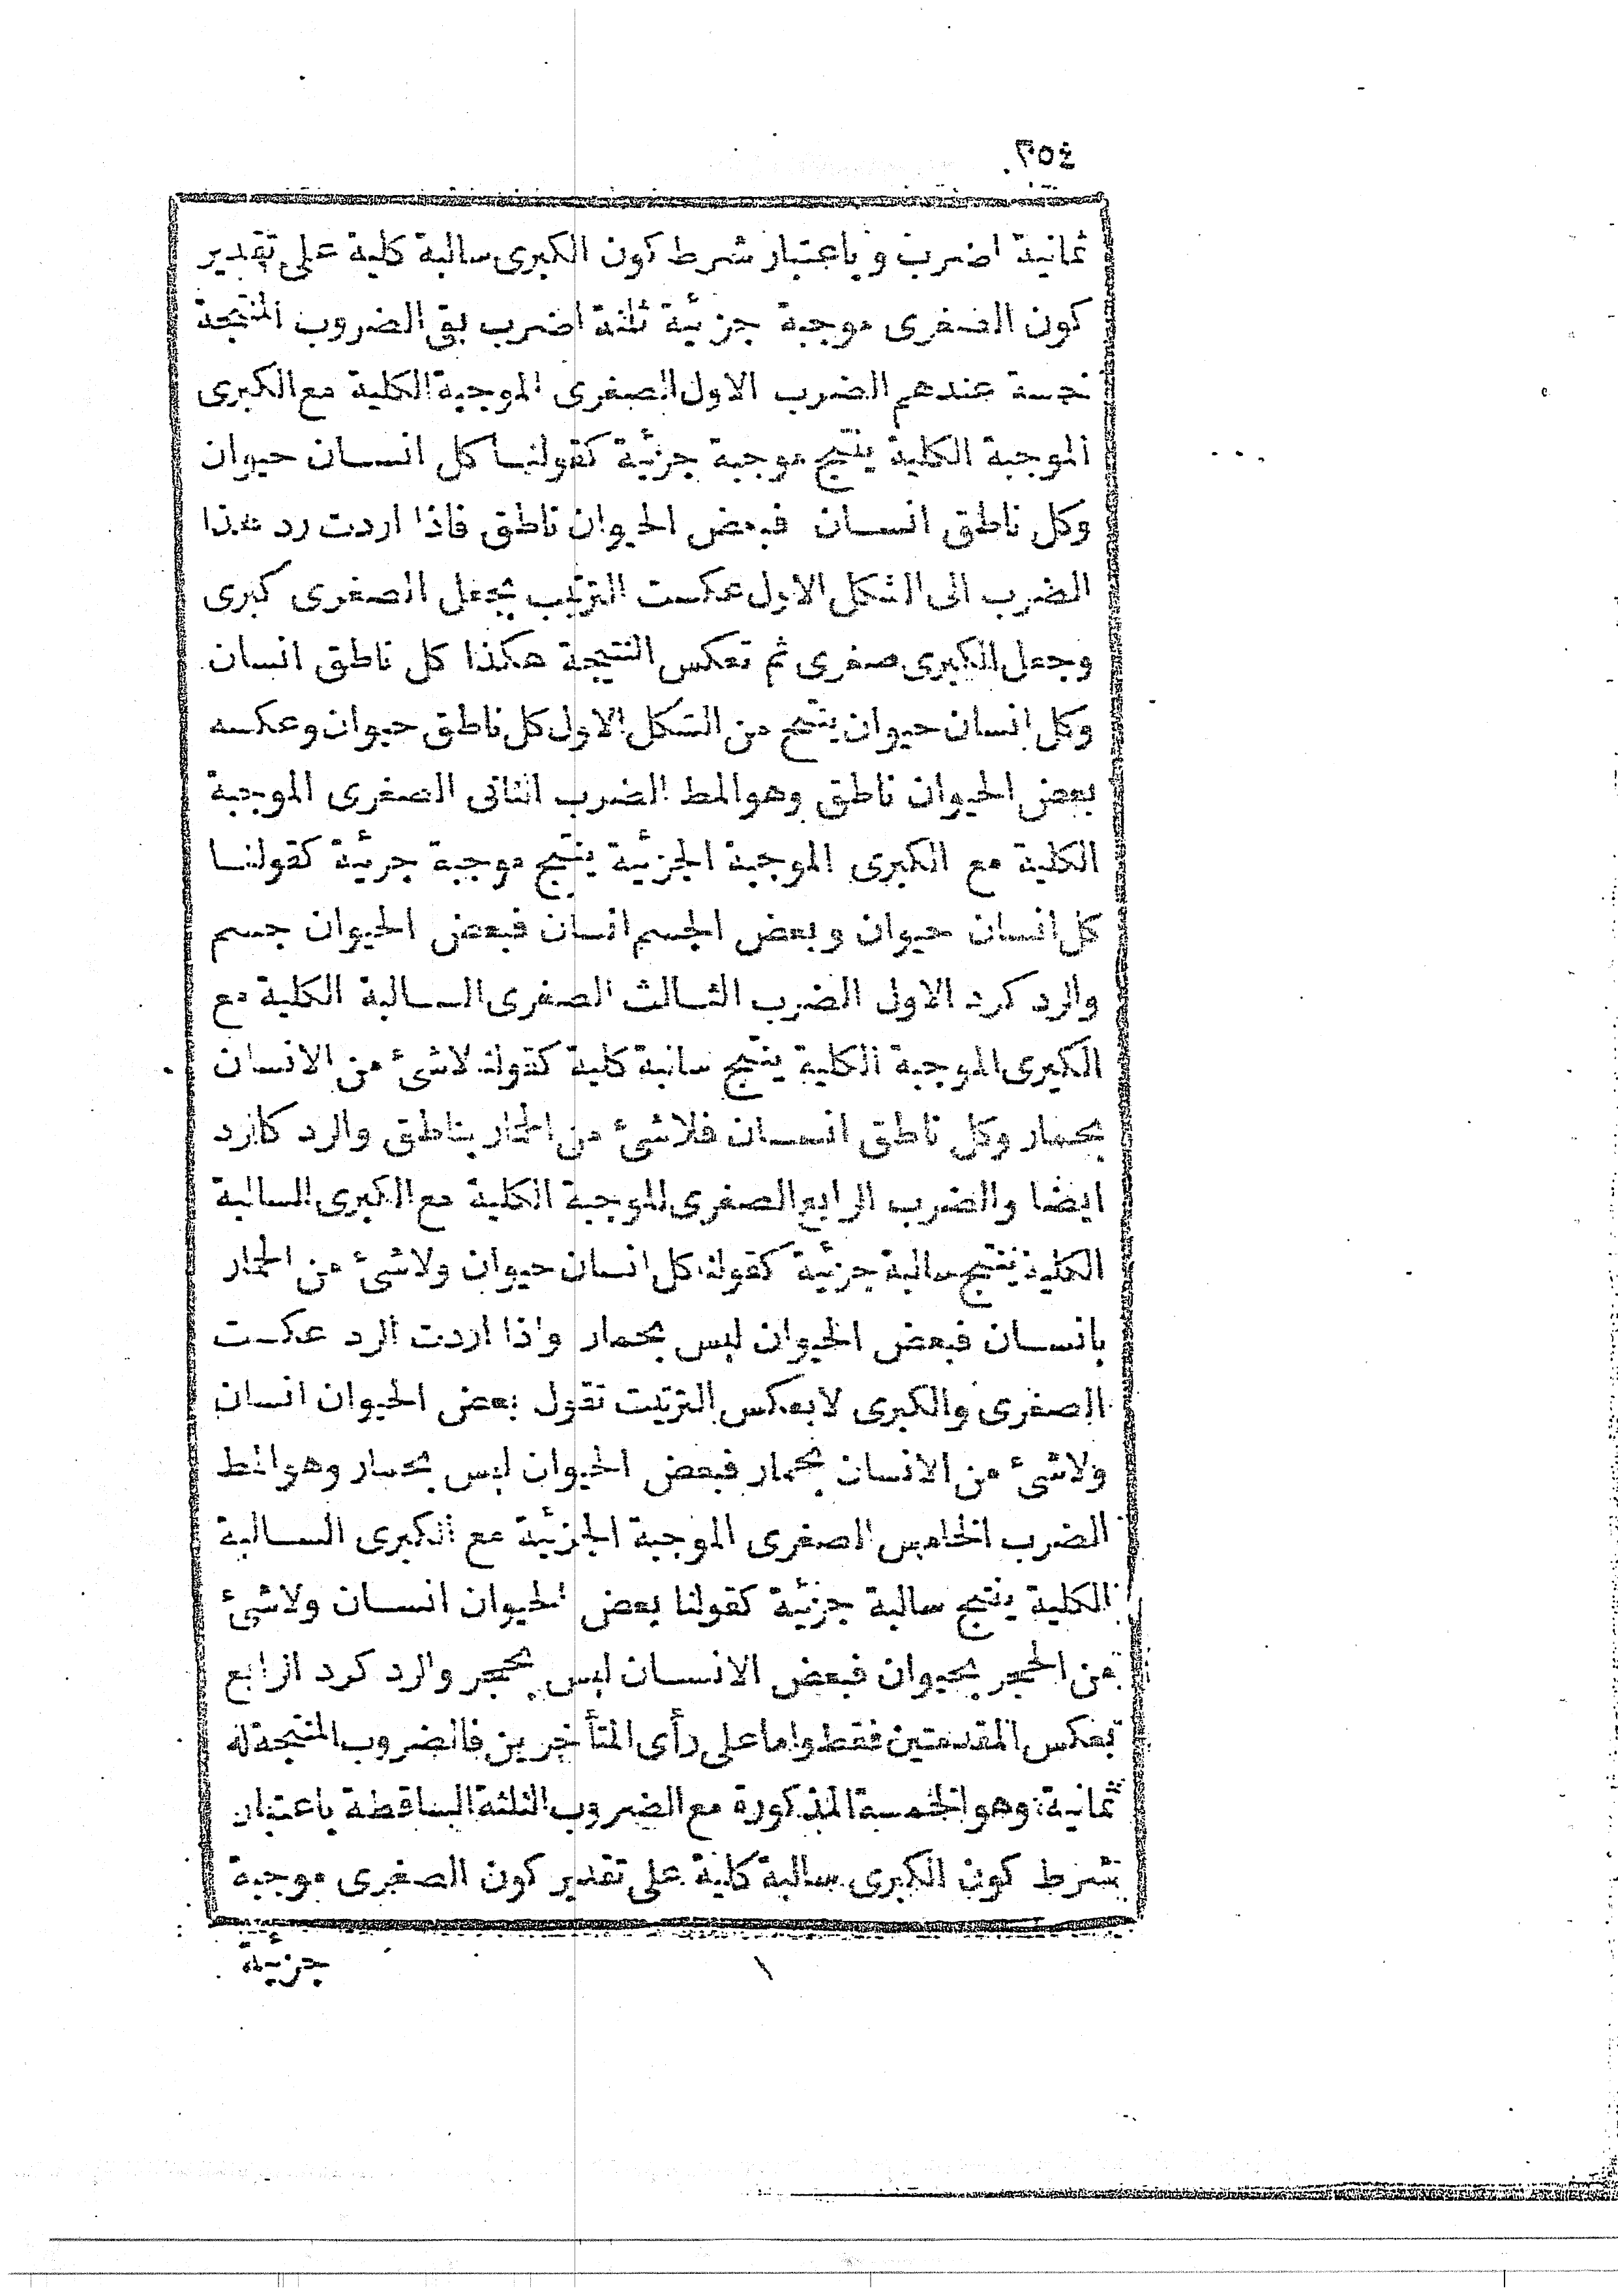 ٢٥٤
ثمانية اضرب وباعتبار شرط كون الكبرى سالبة كلية على تقدير
كون الصغرى موجبة جزئية ثلثة اضرب بقى الضروب المنتجة
خمسة عندهم الضرب الاول الصغرى الموجبة الكلية مع الكبرى
الموجبة الكلية ينتج موجبة جزئية كقولنا كل انسان حيوان
وكل ناطق انسان فبعض الحيوان ناطق فاذا اردت رد هذا
الضرب الى الشكل الاول عكست الترتيب بجعل الصغرى كبرى
وجعل الكبرى صغرى ثم تعكس النتيجة هكذا كل ناطق انسان
وكل انسان حيوان ينتج من الشكل الاول كل ناطق حيوان وعكسه
بعض الحيوان ناطق وهو المط الضرب الثانى الصغرى الموجبة
الكلية مع الكبرى الموجبة الجزئية ينتج موجبة جزئية كقولنا
كل انسان حيوان وبعض الجسم انسان فبعض الحيوان جسم
والرد كرد الاول الضرب الثالث الصغرى السالبة الكلية مع
الكبرى الموجبة الكلية ينتج سالبة كلية كقولنا لاشئ من الانسان
بحمار وكل ناطق انسان فلاشئ من الحمار بناطق والرد كالرد
ايضا والضرب الرابع الصغرى الموجبة الكلية مع الكبرى السالبة
الكلية ينتج سالبة جزئية كقولنا كل انسان حيوان ولاشئ من الحمار
بانسان فبعض الحيوان ليس بحمار واذا اردت الرد عكست
الصغرى والكبرى لا بعكس الترتيت تقول بعض الحيوان انسان
ولاشئ من الانسان بحمار فبعض الحيوان ليس بحمار وهو المط
الضرب الخامس الصغرى الموجبة الجزئية مع الكبرى السالبة
الكلية ينتج سالبة جزئية كقولنا بعض الحيوان انسان ولاشئ
من الحجر بحيوان فبعض الانسان ليس بحجر والرد كرد الرابع
بعكس المقدمتين فقط واما على رأى المتأخرين فالضروب المنتجة له
ثمانية وهو الخمسة المذكورة مع الضروب الثلثة الساقطة باعتبار
شرط كون الكبرى سالبة كلية على تقدير كون الصغرى موجبة
جزئية